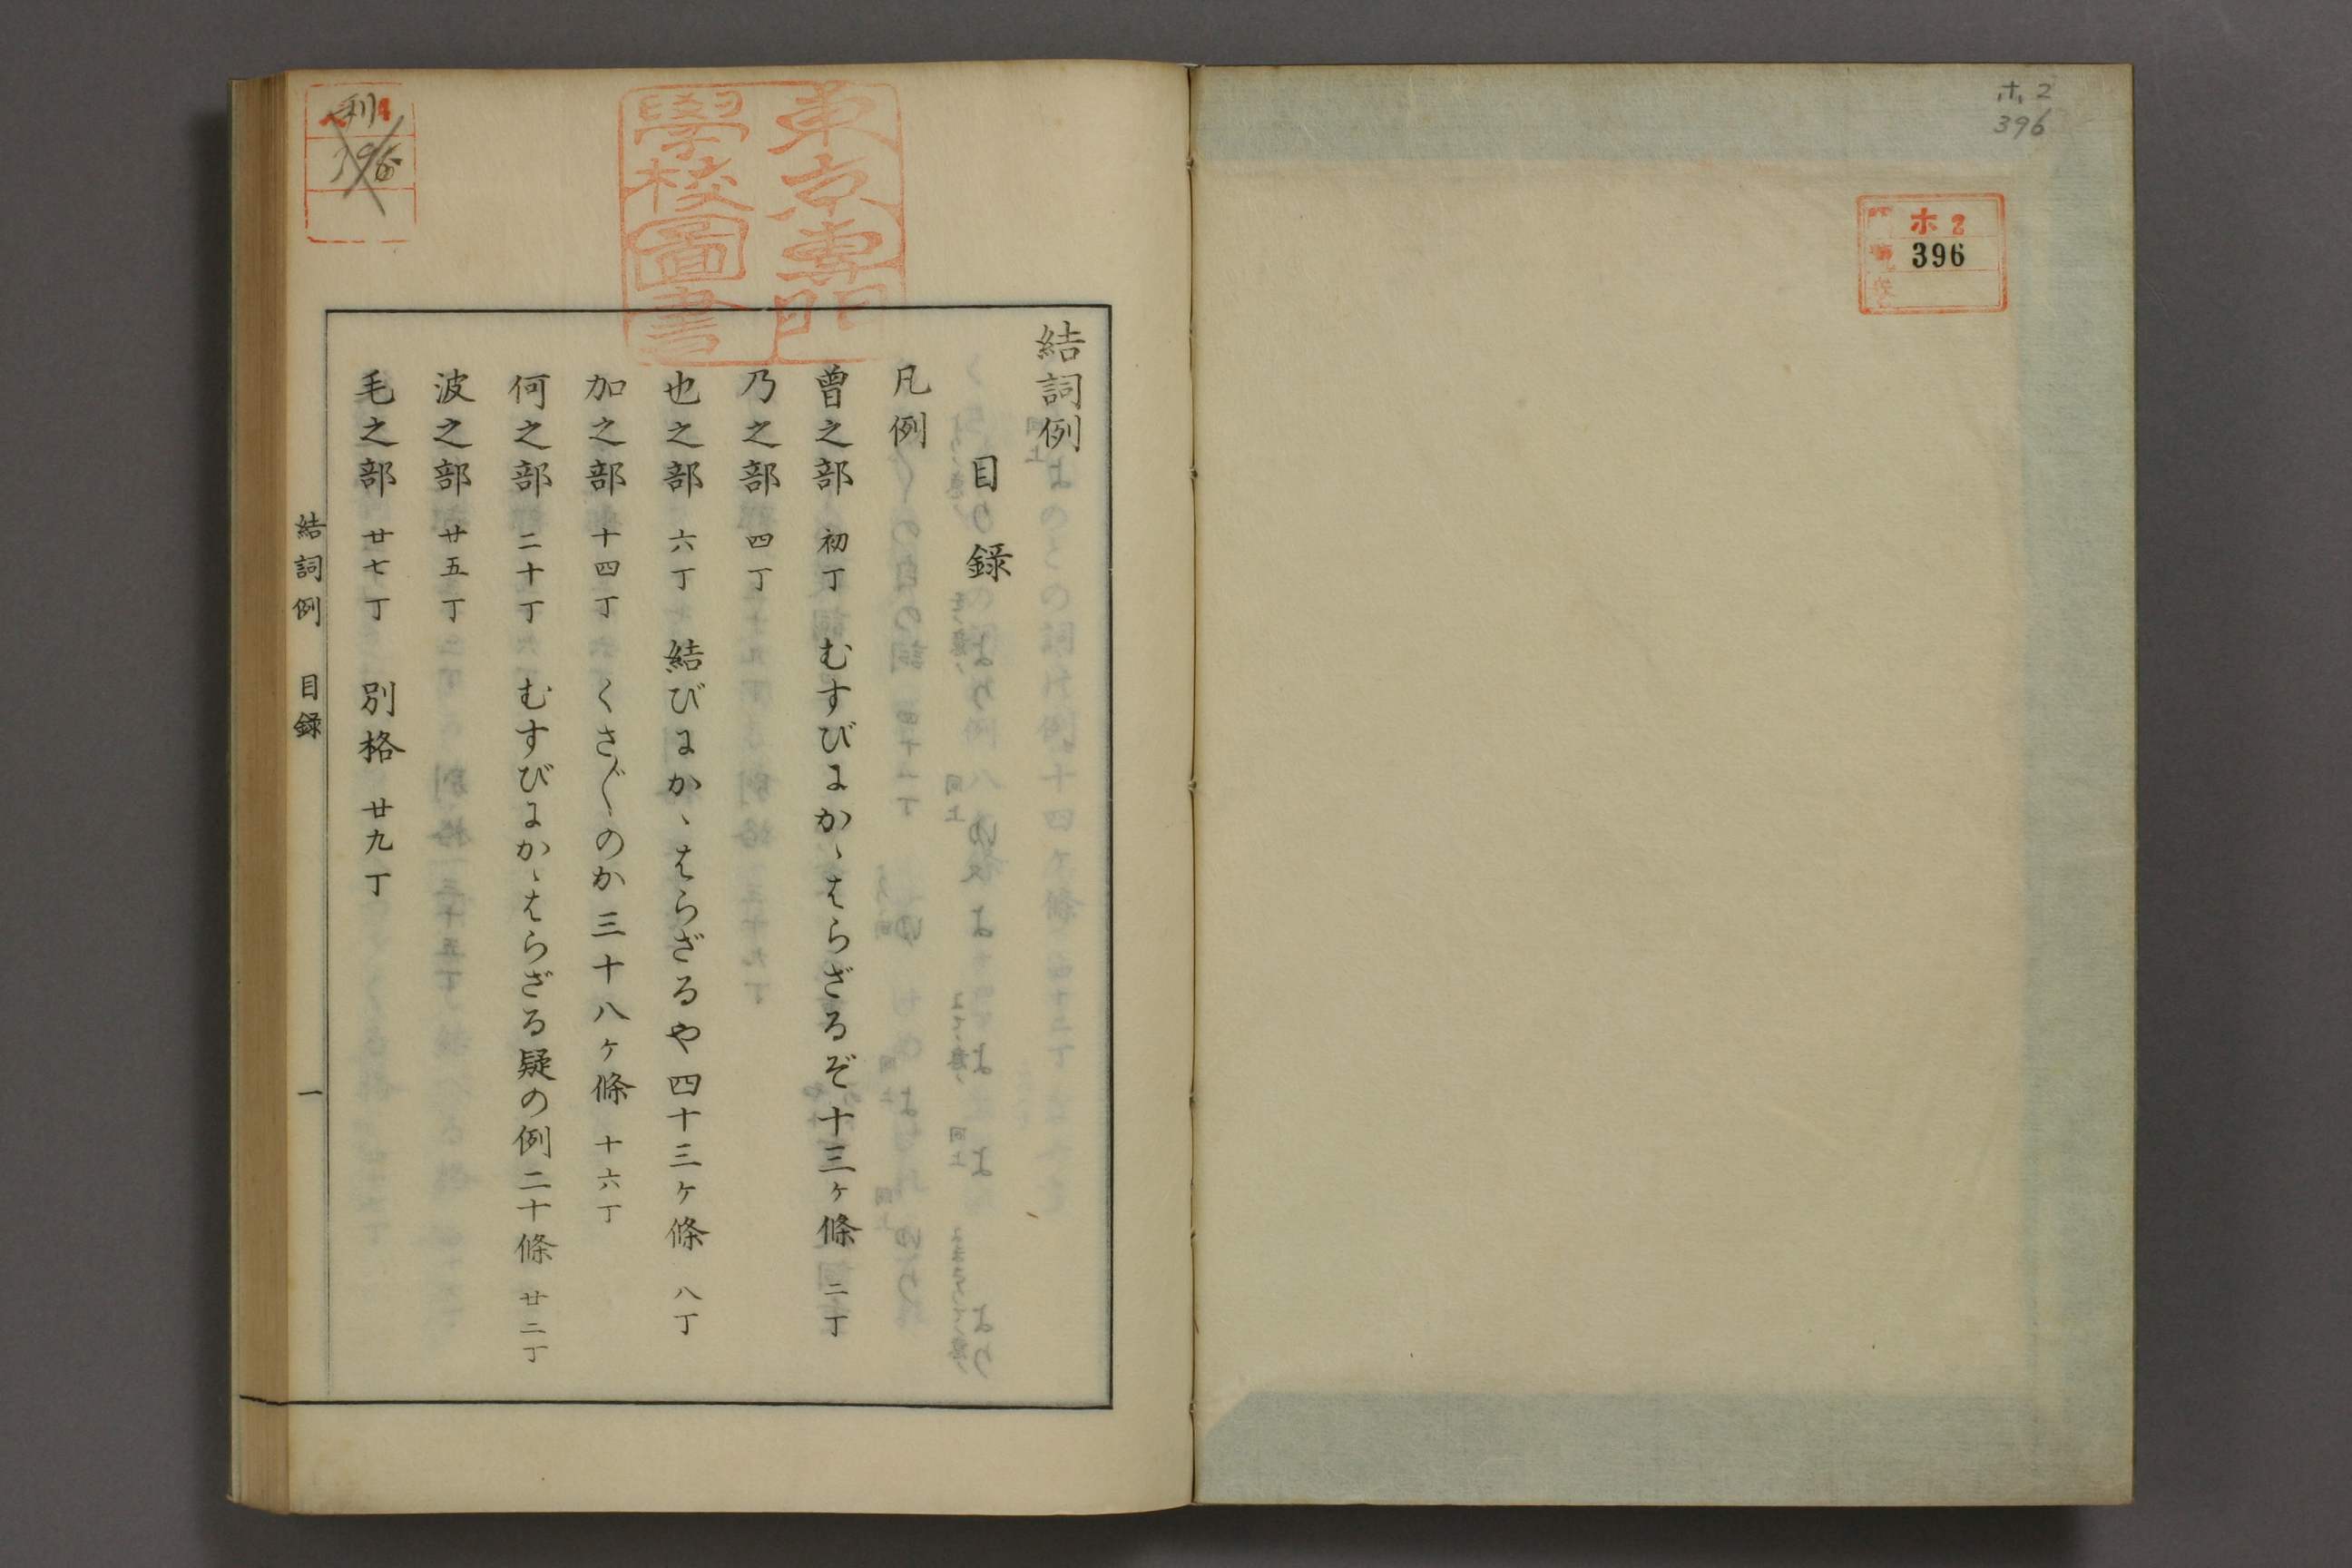 ホ2
396
ホ2
396
結詞例
目録
凡例
曽之部 初丁 むすびにかゝはらざるぞ十三ヶ條 二丁
乃之部 四丁
也之部 六丁 結びにかゝはらざるや四十三ヶ條 八丁
加之部 十四丁 くさ〴〵のか三十八ヶ條 十六丁
何之部 二十丁 むすびにかゝはらざる疑の例二十條 廿二丁
波之部 廿五丁
毛之部 廿七丁 別格 廿九丁
結詞例 目録 一
東京專門
學校圖書